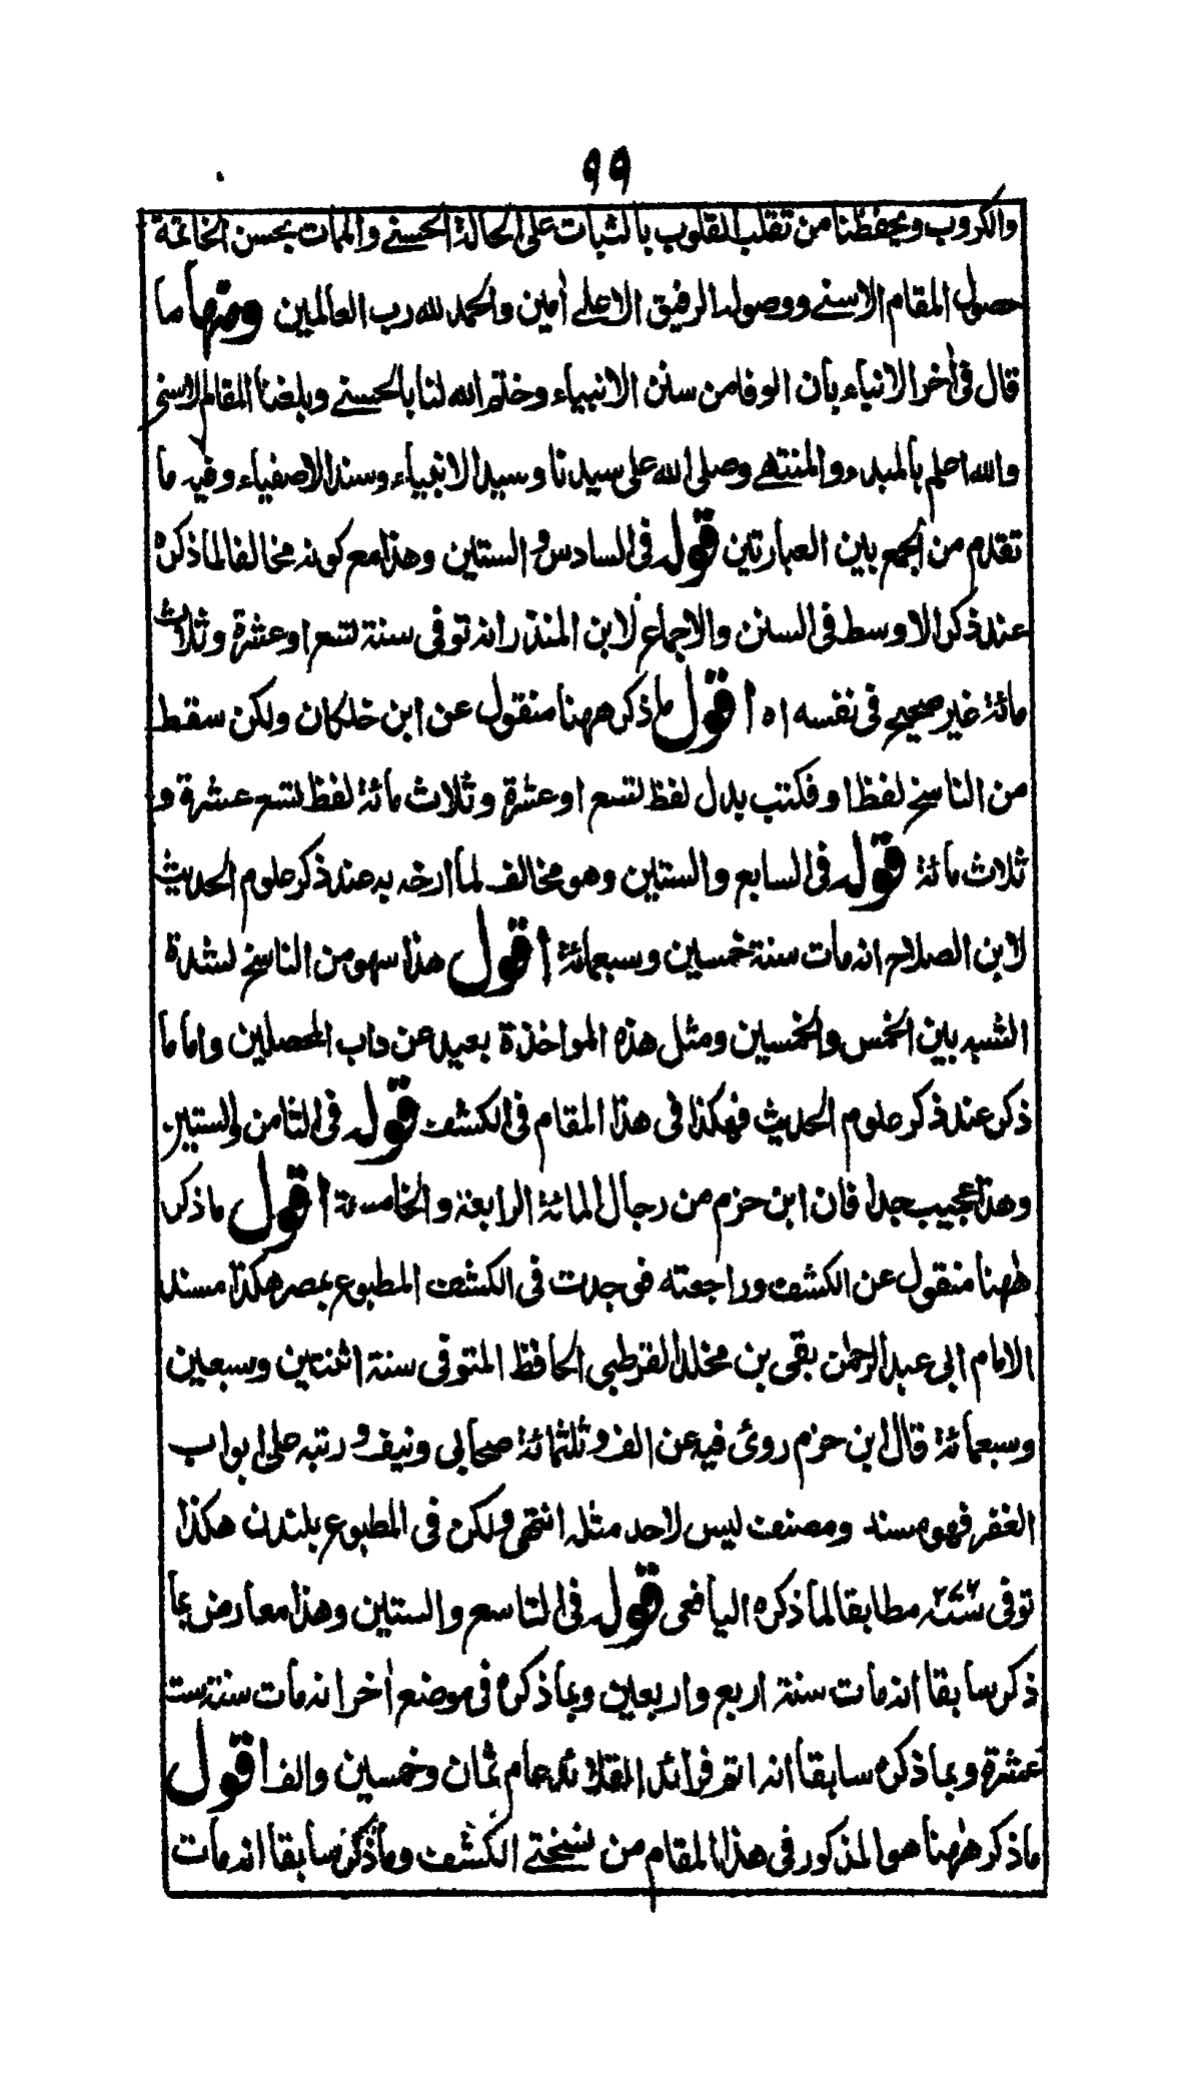 ٩٩
والكروب ويحفظنا من تقلب القلوب بالثبات على الحالة الحسنے والممات بحسن الخاتمة
حصول المقام الاسنے ووصول الرفيق الاعلے اٰمين والحمد لله رب العالمين ومنها ما
قال فى اٰخر الانباء بأن الوفا من سنن الانبياء وختم الله لنا بالحسنے وبلغنا المقام الاسنى
والله اعلم بالمبدء والمنتهے وصلى الله على سيدنا وسيد الانبياء وسند الاصفياء وفيه ما
تقدم من الجمع بين العبارتين قوله فى السادس والستين وهذا مع كونه مخالفا لما ذكره
عند ذكر الاوسط فى السنن والاجماع لابن المنذر انه توفى سنة تسع او عشرة وثلاث
مائة غير صحيح فى نفسه اه اقول ما ذكر ههنا منقول عن ابن خلكان ولكن سقط
من الناسخ لفظ او فكتب بدل لفظ تسع او عشرة وثلاث مائة لفظ تسع عشرة و
ثلاث مائة قوله فى السابع والستين وهو مخالف لما ارخه به عند ذكر علوم الحديث
لابن الصلاح انه مات سنة خمسين وسبعمائة اقول هذا سهو من الناسخ لشدة
الشبه بين الخمس والخمسين ومثل هذه المواخذة بعيد عن داب المحصلين واما ما
ذكر عند ذكر علوم الحديث فهكذا فى هذا المقام فى الكشف قوله فى الثامن والستين
وهذا عجيب جدا فان ابن حزم من رجال المائة الرابعة والخامسة اقول ما ذكر
ههنا منقول عن الكشف وراجعته فوجدت فى الكشف المطبوع بمصر هكذا مسند
الامام ابى عبد الرحمٰن بقى بن مخلد القرطبى الحافظ المتوفى سنة اثنتين وسبعين
وسبعمائة قال ابن حزم روى فيه عن الف وثلثمائة صحابى ونيف ورتبه على ابواب
الفقه فهو مسند ومصنف ليس لاحد مثله انتهى ولكن فى المطبوع بلندن هكذا
توفى سنة ٢٧٢ مطابقا لما ذكره اليافعى قوله فى التاسع والستين وهذا معارض بما
ذكر سابقا انه مات سنة اربع واربعين وبما ذكره فى موضع اٰخر انه مات سنة ست
عشرة وبما ذكره سابقا انه اتم فرائد القلائد عام ثمان وخمسين والف اقول
ما ذكر ههنا هو المذكور فى هذا المقام من نسختے الكشف وما ذكر سابقا انه مات